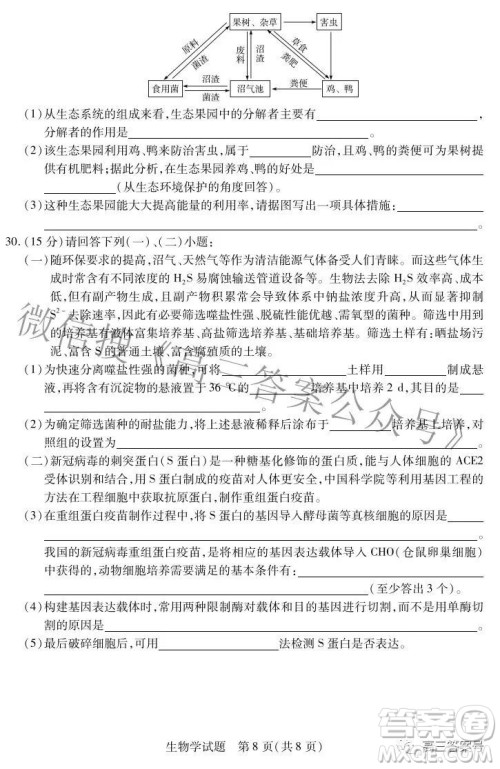 果树、杂草 害虫
原料 菌渣 废料 沼渣 草食 粪肥
食用菌 沼渣 菌渣 沼气池 粪便 鸡、鸭
(1)从生态系统的组成来看,生态果园中的分解者主要有____________,
分解者的作用是____________。
(2)该生态果园利用鸡、鸭来防治害虫,属于________防治,且鸡、鸭的粪便可为果树提
供有机肥料;据此分析,在生态果园养鸡、鸭的好处是____________
____________(从生态环境保护的角度回答)。
(3)这种生态果园能大大提高能量的利用率。请据图写出一项具体措施:____________
____________。
30.(15分)请回答下列(一)、(二)小题:
(一)随环保要求的提高,沼气、天然气等作为清洁能源气体备受人们青睐。而这些气体生
成时常含有不同浓度的H₂S易腐蚀输送管道设备等。生物法去除H₂S 环保且成本
低,但有副产物生成,且副产物积累常会导致体系中钠盐浓度升高,使微生物受到抑制
S²⁻去除速率,因此需要筛选嗜盐性强、脱硫性能优越、需氧型的菌种。实验室用
于培养的培养基有液体富集培养基、高盐筛选培养基、基础培养基。材料有:晒盐场污
泥、富含S的普通土壤、富含腐殖质的土壤。
(1)为快速分离嗜盐性强的菌种,可将____________土样用____________制成悬
液,再将含有沉淀物的悬液置于36 ℃的____________培养基中培养2 d,其目的是
____________。
(2)为确定筛选菌种的耐盐能力,将上述悬液稀释后涂布于________培养基上培养,对
照组的设置为____________。
(二)新冠病毒的刺突蛋白(S蛋白)是一种糖基化修饰的蛋白质,能与人体细胞的ACE2
受体识别并结合,使用S蛋白制成的疫苗对人体更安全,中国科学院等利用基因工程的
方法在工程细胞中获取抗原蛋白,用于制备疫苗。
(3)在重组蛋白疫苗制作过程中,将S蛋白的基因导入酵母菌等真核细胞的原因是________
____________。
我国的新冠病毒重组蛋白疫苗,是将构建好的基因表达载体导入CHO(仓鼠卵巢细胞)中
获得的,动物细胞培养需要满足的基本条件有:____________
____________(至少答出3个)。
(4)构建基因表达载体时,常用两种限制酶对载体和目的基因进行切割,而不用单酶切
割的原因是____________。
(5)最后破碎细胞后,可用____________法检测S蛋白是否表达。
生物学试题 第8页(共8页)
微信搜《高三答案公众号》
答案圈
高三答案号